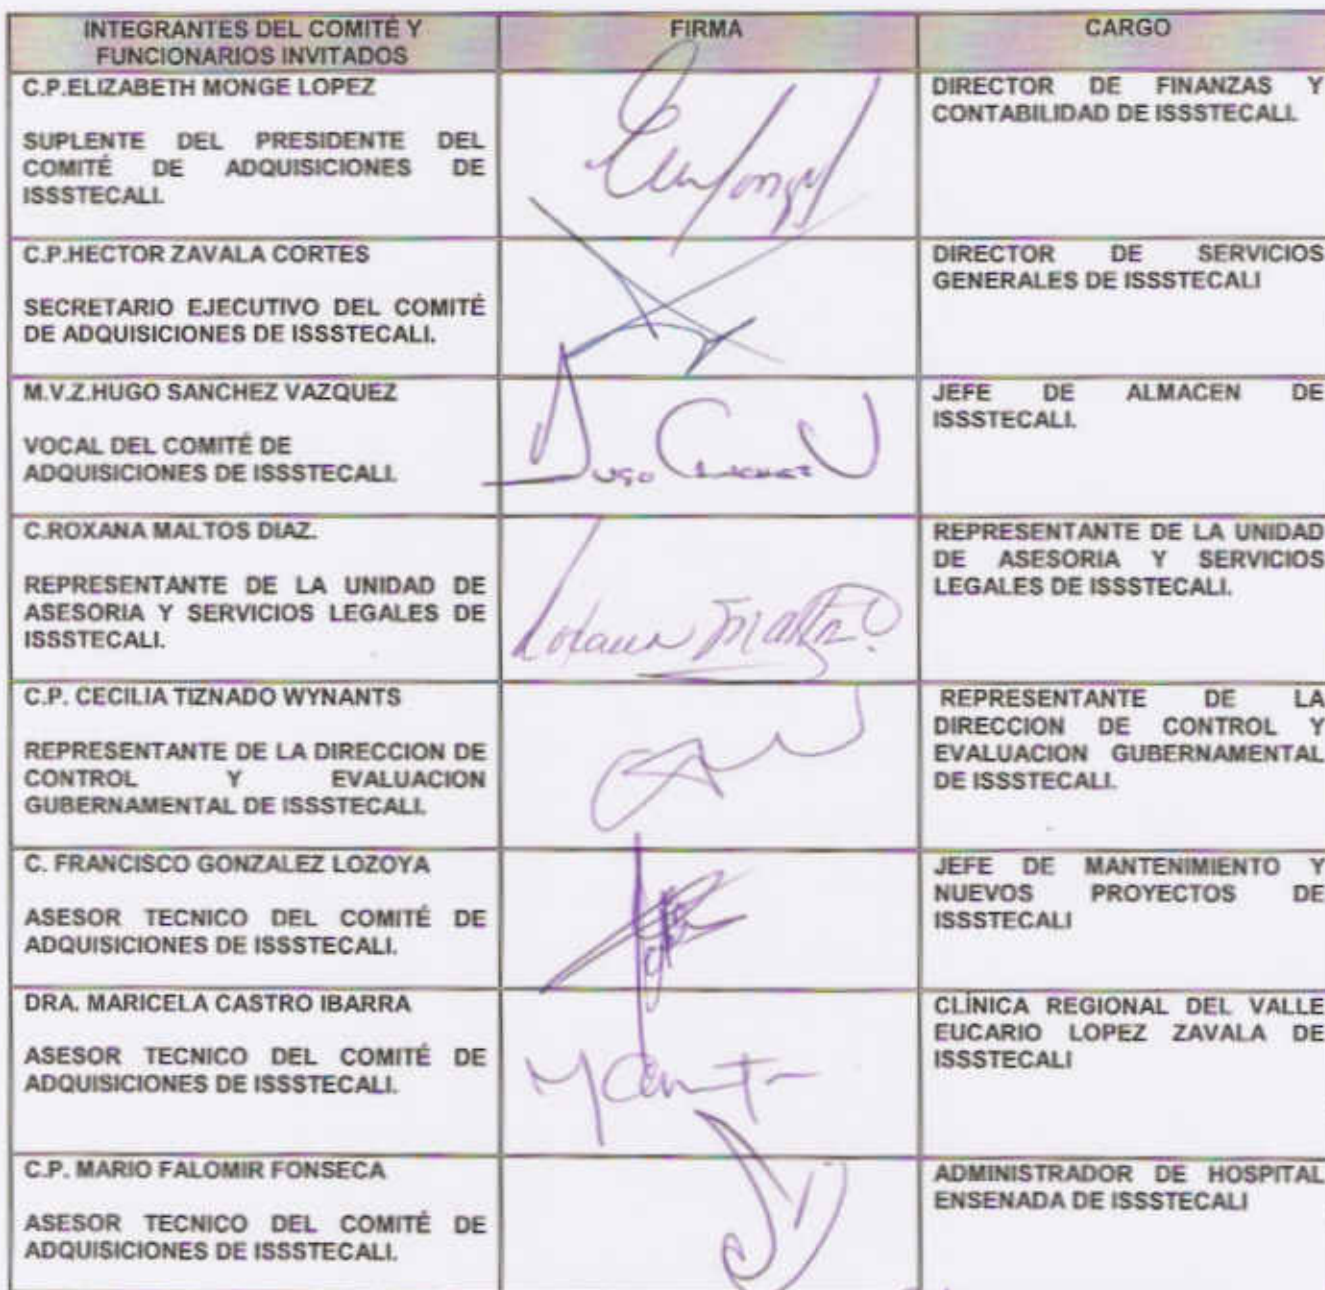 INTEGRANTES DEL COMITÉ Y
FUNCIONARIOS INVITADOS
FIRMA
CARGO
C.P.ELIZABETH MONGE LOPEZ
SUPLENTE DEL PRESIDENTE DEL
COMITÉ DE ADQUISICIONES DE
ISSSTECALI.
DIRECTOR DE FINANZAS Y
CONTABILIDAD DE ISSSTECALI.
C.P.HECTOR ZAVALA CORTES
SECRETARIO EJECUTIVO DEL COMITÉ
DE ADQUISICIONES DE ISSSTECALI.
DIRECTOR DE SERVICIOS
GENERALES DE ISSSTECALI
M.V.Z.HUGO SANCHEZ VAZQUEZ
VOCAL DEL COMITÉ DE
ADQUISICIONES DE ISSSTECALI.
JEFE DE ALMACEN DE
ISSSTECALI.
C.ROXANA MALTOS DIAZ.
REPRESENTANTE DE LA UNIDAD DE
ASESORIA Y SERVICIOS LEGALES DE
ISSSTECALI.
REPRESENTANTE DE LA UNIDAD
DE ASESORIA Y SERVICIOS
LEGALES DE ISSSTECALI.
C.P. CECILIA TIZNADO WYNANTS
REPRESENTANTE DE LA DIRECCION DE
CONTROL Y EVALUACION
GUBERNAMENTAL DE ISSSTECALI.
REPRESENTANTE DE LA
DIRECCION DE CONTROL Y
EVALUACION GUBERNAMENTAL
DE ISSSTECALI.
C. FRANCISCO GONZALEZ LOZOYA
ASESOR TECNICO DEL COMITÉ DE
ADQUISICIONES DE ISSSTECALI.
JEFE DE MANTENIMIENTO Y
NUEVOS PROYECTOS DE
ISSSTECALI
DRA. MARICELA CASTRO IBARRA
ASESOR TECNICO DEL COMITÉ DE
ADQUISICIONES DE ISSSTECALI.
CLÍNICA REGIONAL DEL VALLE
EUCARIO LOPEZ ZAVALA DE
ISSSTECALI
C.P. MARIO FALOMIR FONSECA
ASESOR TECNICO DEL COMITÉ DE
ADQUISICIONES DE ISSSTECALI.
ADMINISTRADOR DE HOSPITAL
ENSENADA DE ISSSTECALI